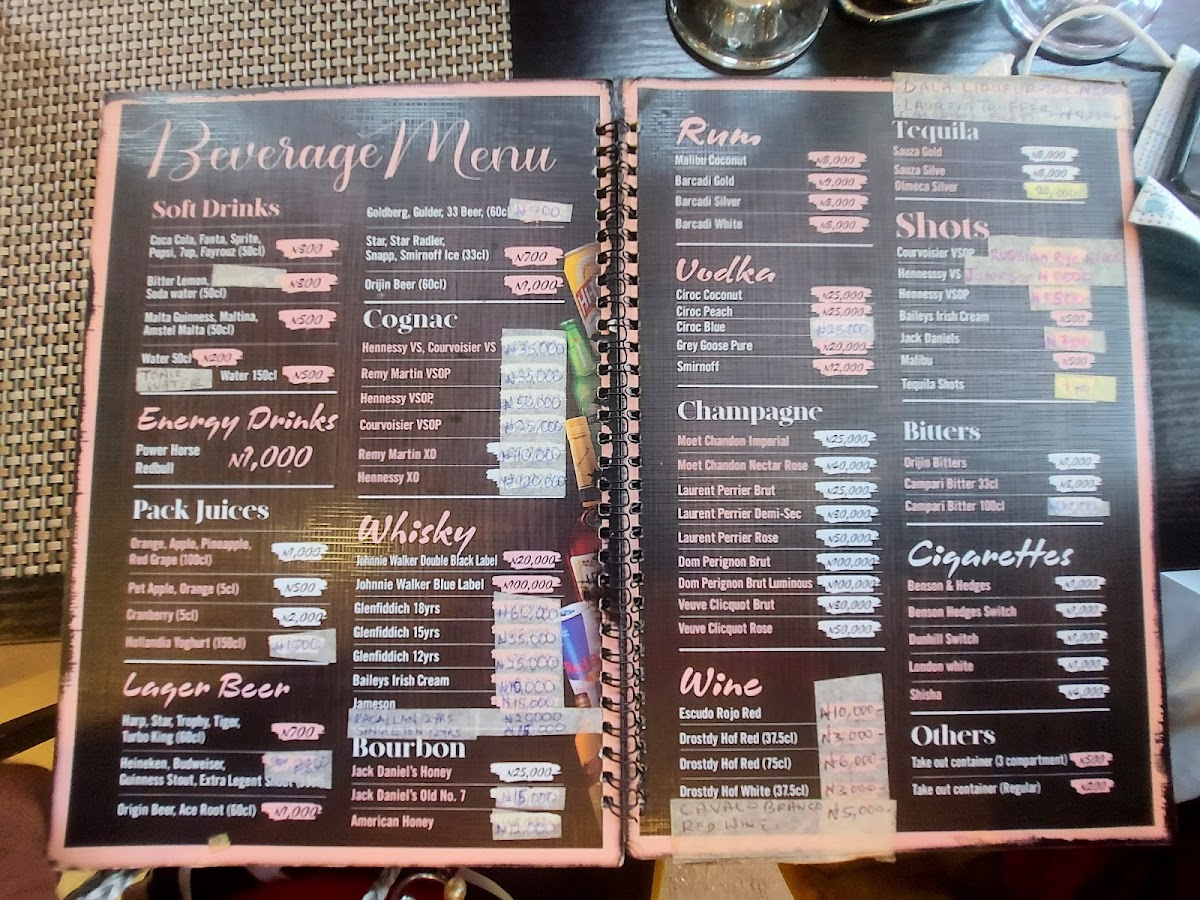 Beverage Menu
Soft Drinks
Coca Cola, Fanta, Sprite,
Pepsi, 7up, Fayrouz (50cl) ₦500
Bitter Lemon,
Soda water (50cl) ₦500
Malta Guinness, Maltina,
Amstel Malta (50cl) ₦500
Water 50cl ₦200
TONIC WATER Water 150cl ₦500
Energy Drinks
Power Horse
Redbull ₦1,000
Pack Juices
Orange, Apple, Pineapple,
Red Grape (100cl) ₦1,000
Pet Apple, Orange (5cl) ₦500
Cranberry (5cl) ₦2,000
Hollandia Yoghurt (150cl)
Lager Beer
Harp, Star, Trophy, Tiger,
Turbo King (60cl) ₦700
Heineken, Budweiser,
Guinness Stout, Extra Legent Stout
Origin Beer, Ace Root (60cl) ₦1,000
Goldberg, Gulder, 33 Beer, (60cl) ₦700
Star, Star Radler,
Snapp, Smirnoff Ice (33cl) ₦700
Orijin Beer (60cl) ₦1,000
Cognac
Hennessy VS, Courvoisier VS ₦35,000
Remy Martin VSOP ₦35,000
Hennessy VSOP, ₦50,000
Courvoisier VSOP ₦25,000
Remy Martin XO
Hennessy XO
Whisky
Johnnie Walker Double Black Label ₦20,000
Johnnie Walker Blue Label ₦100,000
Glenfiddich 18yrs ₦60,000
Glenfiddich 15yrs ₦35,000
Glenfiddich 12yrs
Baileys Irish Cream ₦10,000
Jameson ₦15,000
MACALLAN 12YRS ₦20000
SINGLETON 12YRS
Bourbon
Jack Daniel's Honey ₦25,000
Jack Daniel's Old No. 7 ₦15,000
American Honey ₦12,000
Rum
Malibu Coconut ₦8,000
Barcadi Gold ₦9,000
Barcadi Silver ₦8,000
Barcadi White ₦8,000
Vodka
Ciroc Coconut ₦25,000
Ciroc Peach ₦25,000
Ciroc Blue ₦25,000
Grey Goose Pure ₦20,000
Smirnoff ₦12,000
Champagne
Moet Chandon Imperial ₦25,000
Moet Chandon Nectar Rose ₦40,000
Laurent Perrier Brut ₦25,000
Laurent Perrier Demi-Sec ₦30,000
Laurent Perrier Rose ₦50,000
Dom Perignon Brut ₦100,000
Dom Perignon Brut Luminous ₦100,000
Veuve Clicquot Brut ₦30,000
Veuve Clicquot Rose ₦50,000
Wine
Escudo Rojo Red ₦10,000-
Drostdy Hof Red (37.5cl) ₦3,000-
Drostdy Hof Red (75cl) ₦6,000-
Drostdy Hof White (37.5cl) ₦3,000-
CAVALO BRANCO
RED WINE ₦5,000-
- DALA LIQUEUR
- LAURENT ₦4,000-
Tequila
Sauza Gold ₦8,000
Sauza Silve ₦8,000
Olmeca Silver
Shots
Courvoisier VSOP RUSSIAN
Hennesssy VS Jameson
Hennessy VSOP
Baileys Irish Cream ₦500
Jack Daniels
Malibu ₦500
Tequila Shots
Bitters
Orijin Bitters ₦1,000
Campari Bitter 33cl
Campari Bitter 100cl
Cigarettes
Benson & Hedges ₦1,000
Benson Hedges Switch ₦1,000
Dunhill Switch ₦1,000
London white ₦1,000
Shisha
Others
Take out container (3 compartment) ₦500
Take out container (Regular) ₦200